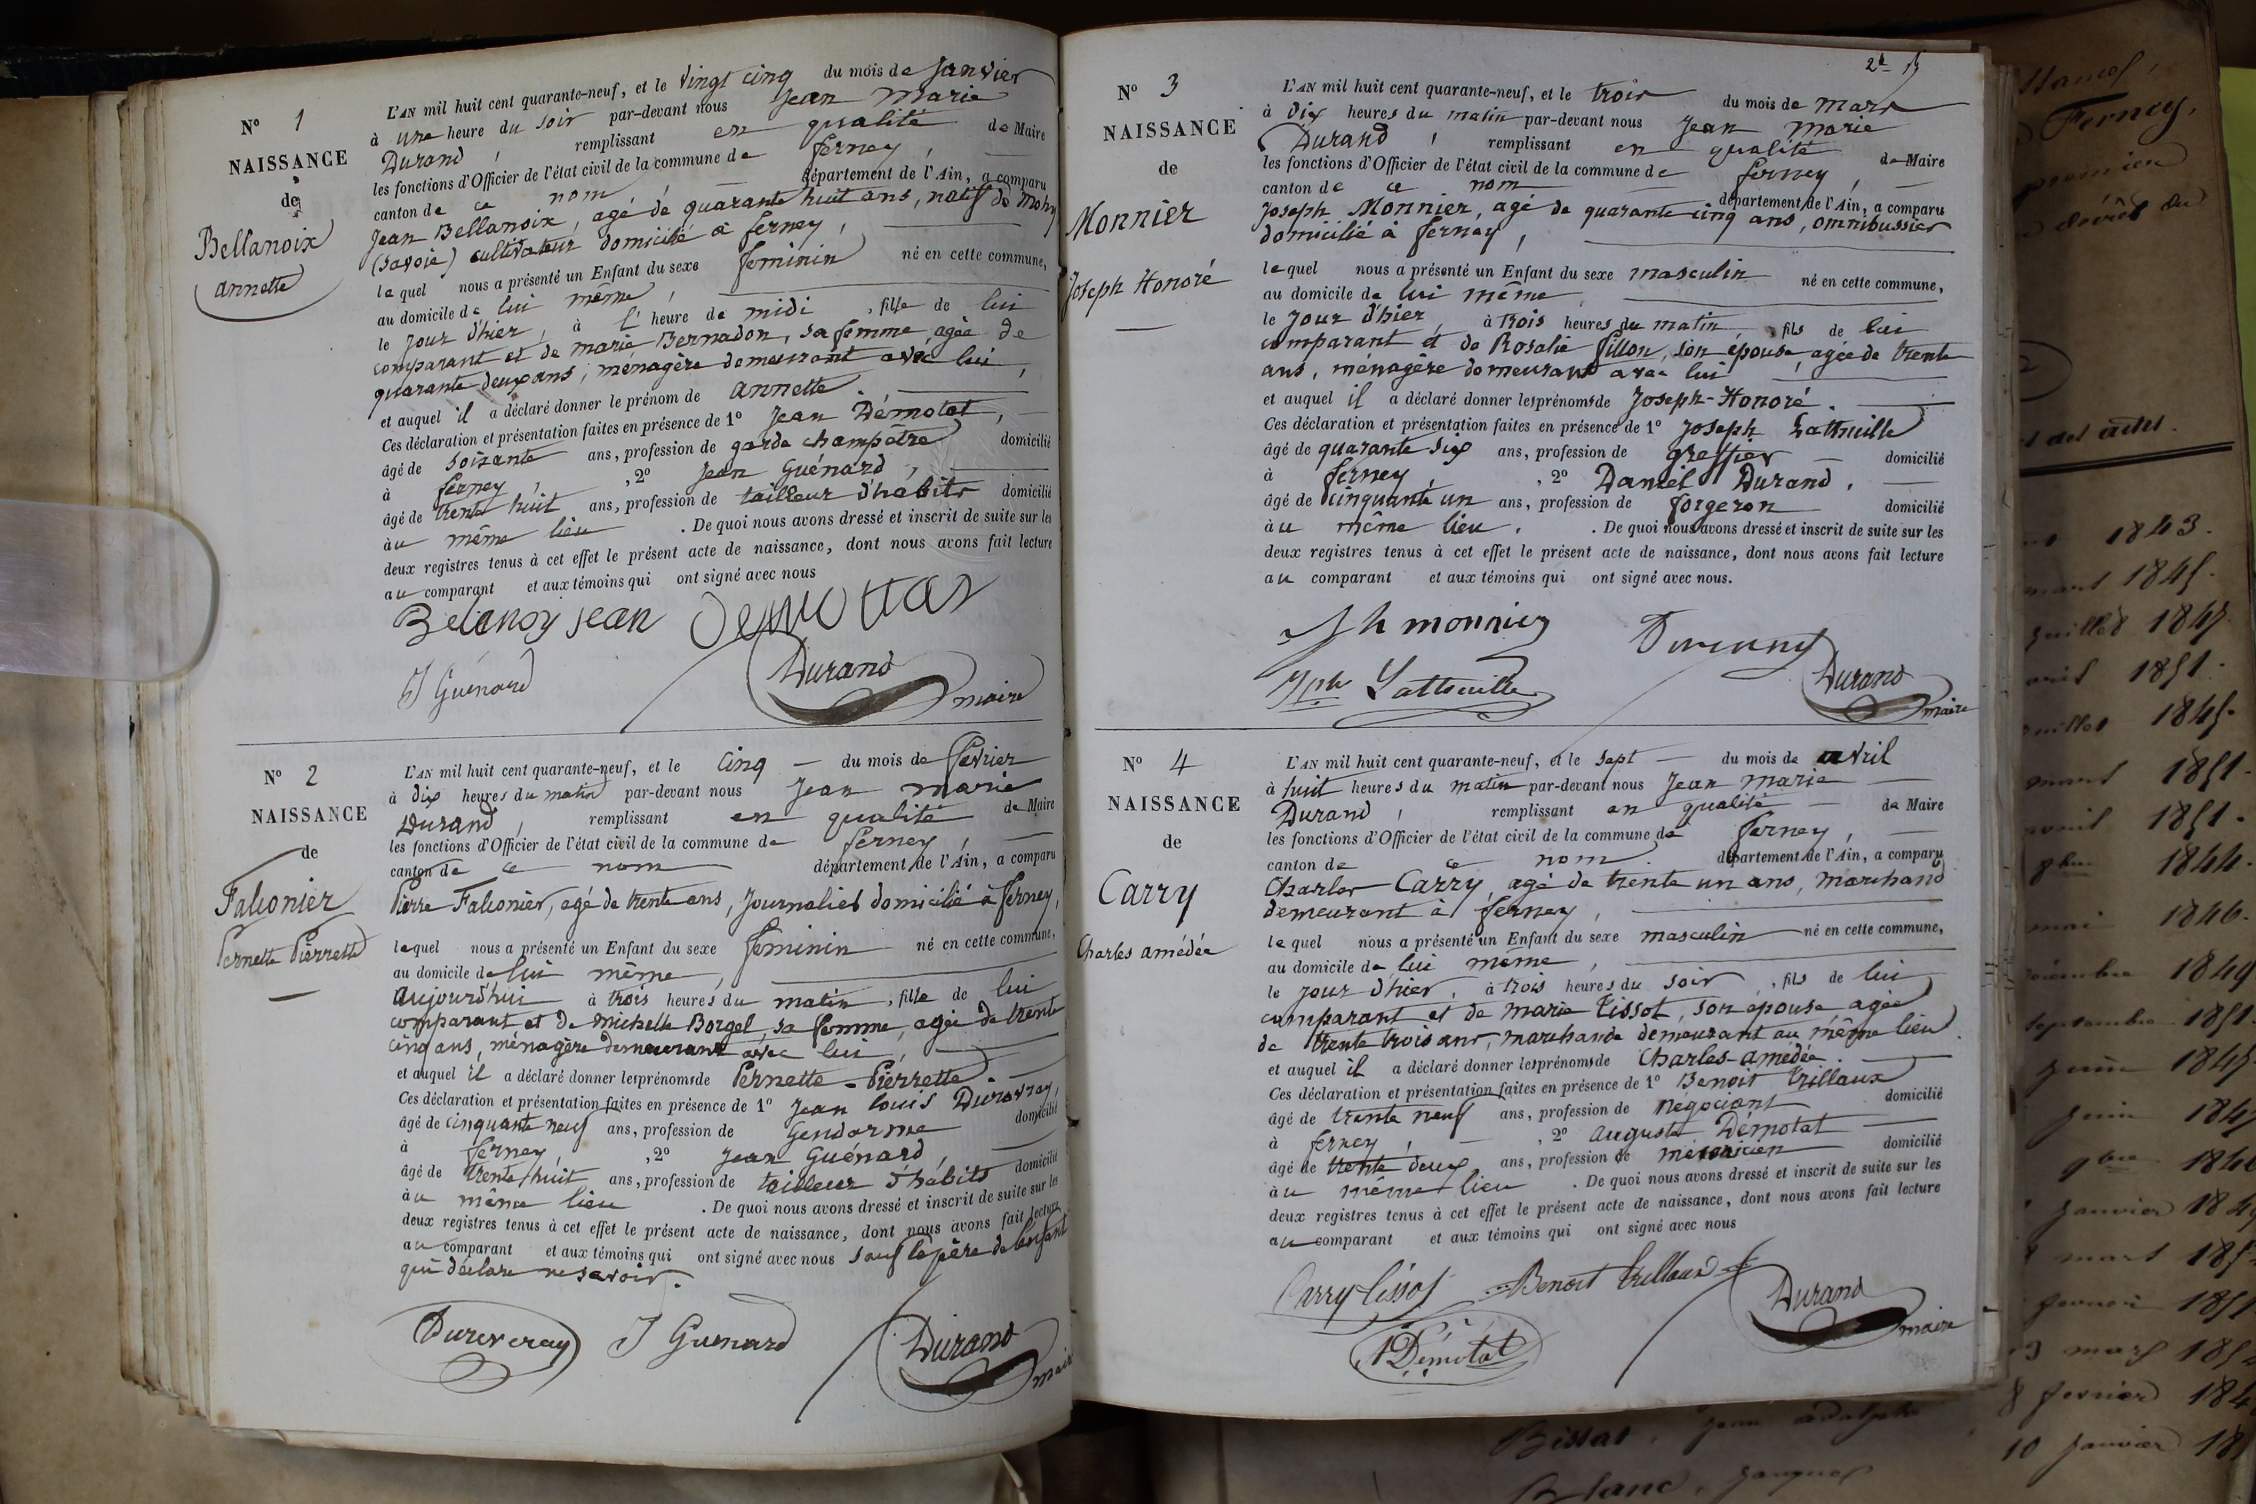 N° 1
NAISSANCE
de
Bellanoix
annette
L'AN mil huit cent quarante-neuf, et le vingt cinq du mois de Janvier
à une heure du soir par-devant nous Jean Marie
Durand, remplissant en qualité de Maire
les fonctions d'Officier de l'état civil de la commune de ferney,
canton de ce nom département de l'Ain, a comparu
Jean Bellanoix, agé de quarante huit ans, natif de
(Savoie) cultivateur domicilié à ferney,
lequel nous a présenté un Enfant du sexe feminin né en cette commune,
au domicile de lui même,
le jour d'hier, à l' heure de midi, fille de lui
comparant et de marie Bernadon, sa femme, agée de
quarante deux ans, ménagère demeurant avec lui,
et auquel il a déclaré donner le prénom de annette.
Ces déclaration et présentation faites en présence de 1° Jean Démotat,
âgé de soixante ans, profession de garde champêtre domicilié
à ferney, 2° Jean Guénard,
âgé de trente huit ans, profession de tailleur d'habits domicilié
au même lieu. De quoi nous avons dressé et inscrit de suite sur les
deux registres tenus à cet effet le présent acte de naissance, dont nous avons fait lecture
au comparant et aux témoins qui ont signé avec nous
Belanoy jean
J Guénard Durand maire
N° 2
NAISSANCE
de
Falconier
Pernette Pierrette
L'AN mil huit cent quarante-neuf, et le cinq du mois de février
à dix heures du matin par-devant nous Jean marie
Durand, remplissant en qualité de Maire
les fonctions d'Officier de l'état civil de la commune de ferney,
canton de ce nom département de l'Ain, a comparu
Pierre Falconier, agé de trente ans, Journalier domicilié à ferney,
lequel nous a présenté un Enfant du sexe feminin né en cette commune,
au domicile de lui même,
aujourd'hui à trois heures du matin, fille de lui
comparant et de michelle Borgel, sa femme, agée de trente
cinq ans, ménagère demeurant avec lui,
et auquel il a déclaré donner les prénoms de Pernette-Pierrette.
Ces déclaration et présentation faites en présence de 1° Jean louis Duroveray,
âgé de cinquante neuf ans, profession de Gendarme domicilié
à ferney, 2° Jean Guénard,
âgé de trente huit ans, profession de tailleur d'habits domicilié
au même lieu. De quoi nous avons dressé et inscrit de suite sur les
deux registres tenus à cet effet le présent acte de naissance, dont nous avons fait lecture
au comparant et aux témoins qui ont signé avec nous sauf le père de l'enfant
qui déclare ne savoir.
Dureveray J Guénard Durand maire
N° 3
NAISSANCE
de
Monnier
Joseph Honoré
L'AN mil huit cent quarante-neuf, et le trois du mois de mars
à dix heures du matin par-devant nous Jean Marie
Durand, remplissant en qualité de Maire
les fonctions d'Officier de l'état civil de la commune de ferney,
canton de ce nom département de l'Ain, a comparu
Joseph Monnier, agé de quarante cinq ans, omnibussier
domicilié à ferney,
lequel nous a présenté un Enfant du sexe masculin né en cette commune,
au domicile de lui même,
le jour d'hier, à trois heures du matin, fils de lui
comparant et de Rosalie fillon, son épouse, agée de trente
ans, ménagère demeurant avec lui
et auquel il a déclaré donner les prénoms de Joseph-Honoré.
Ces déclaration et présentation faites en présence de 1° Joseph Lattuille
âgé de quarante six ans, profession de greffier domicilié
à ferney, 2° Daniel Durand,
âgé de cinquante un ans, profession de forgeron domicilié
au même lieu. De quoi nous avons dressé et inscrit de suite sur les
deux registres tenus à cet effet le présent acte de naissance, dont nous avons fait lecture
au comparant et aux témoins qui ont signé avec nous.
Jh monnier
Jph Lattuille Durand maire
N° 4
NAISSANCE
de
Carry
Charles amédée
L'AN mil huit cent quarante-neuf, et le sept du mois de avril
à huit heures du matin par-devant nous Jean marie
Durand, remplissant en qualité de Maire
les fonctions d'Officier de l'état civil de la commune de ferney,
canton de ce nom. département de l'Ain, a comparu
Charles Carry, agé de trente un ans, marchand
demeurant à ferney,
lequel nous a présenté un Enfant du sexe masculin né en cette commune,
au domicile de lui même,
le jour d'hier, à trois heures du soir, fils de lui
comparant et de marie Tissot, son épouse agée
de trente trois ans, marchande demeurant au même lieu.
et auquel il a déclaré donner les prénoms de Charles-amédée.
Ces déclaration et présentation faites en présence de 1° Benoit Trillaux
âgé de trente neuf ans, profession de négociant domicilié
à ferney, 2° auguste Démotat
âgé de trente deux ans, profession de domicilié
au même lieu. De quoi nous avons dressé et inscrit de suite sur les
deux registres tenus à cet effet le présent acte de naissance, dont nous avons fait lecture
au comparant et aux témoins qui ont signé avec nous
Carry Tissot Benoit Trillaux Durand maire
A Démotat
Ferney,
des actes.
1843.
mars 1845.
juillet 1847.
avril 1851.
juillet 1845.
mars 1851.
avril 1851.
1844.
mai 1846.
1849
septembre 1851.
juin 1845
juin 1847
janvier 1849
mars 185
février 1851
mars 185
8 fevrier 184
10 janvier 18
Bissat, jean adolphe
Blanc, Jacques